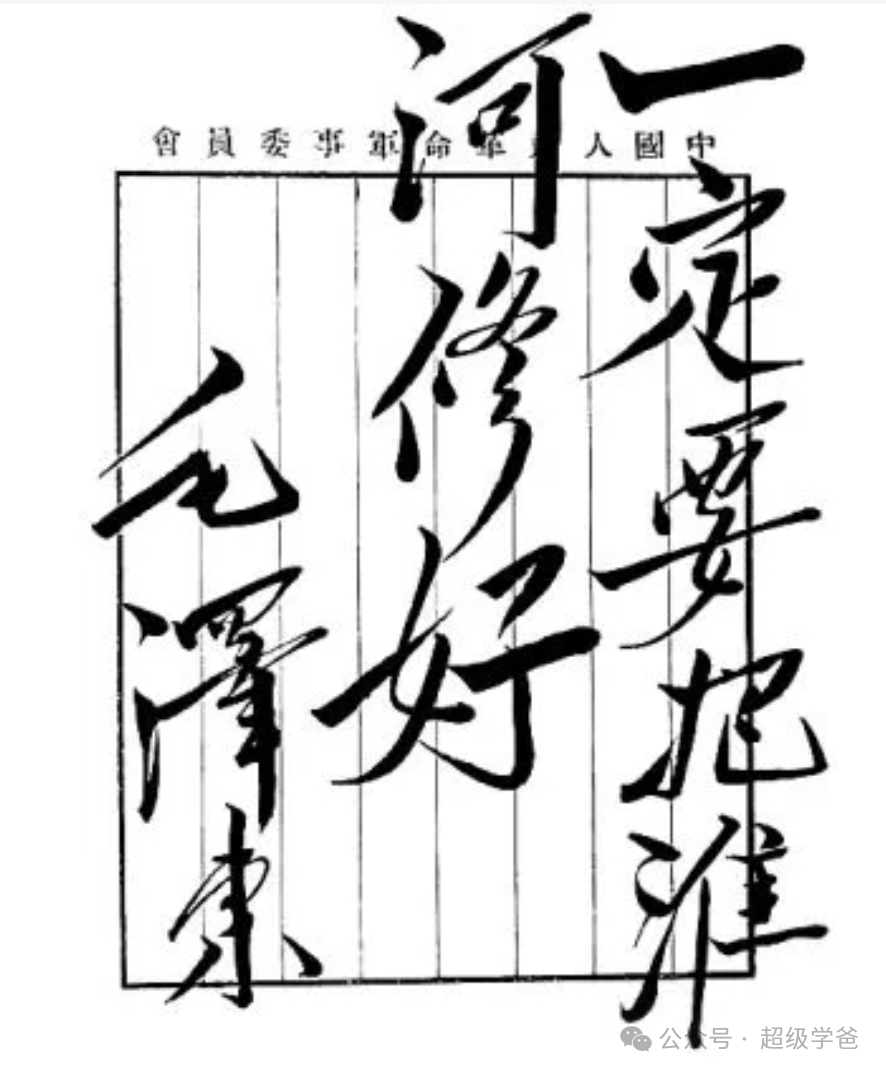 中國人民革命軍事委員會
一定要把淮
河修好
毛澤東
公众号 · 超级学爸